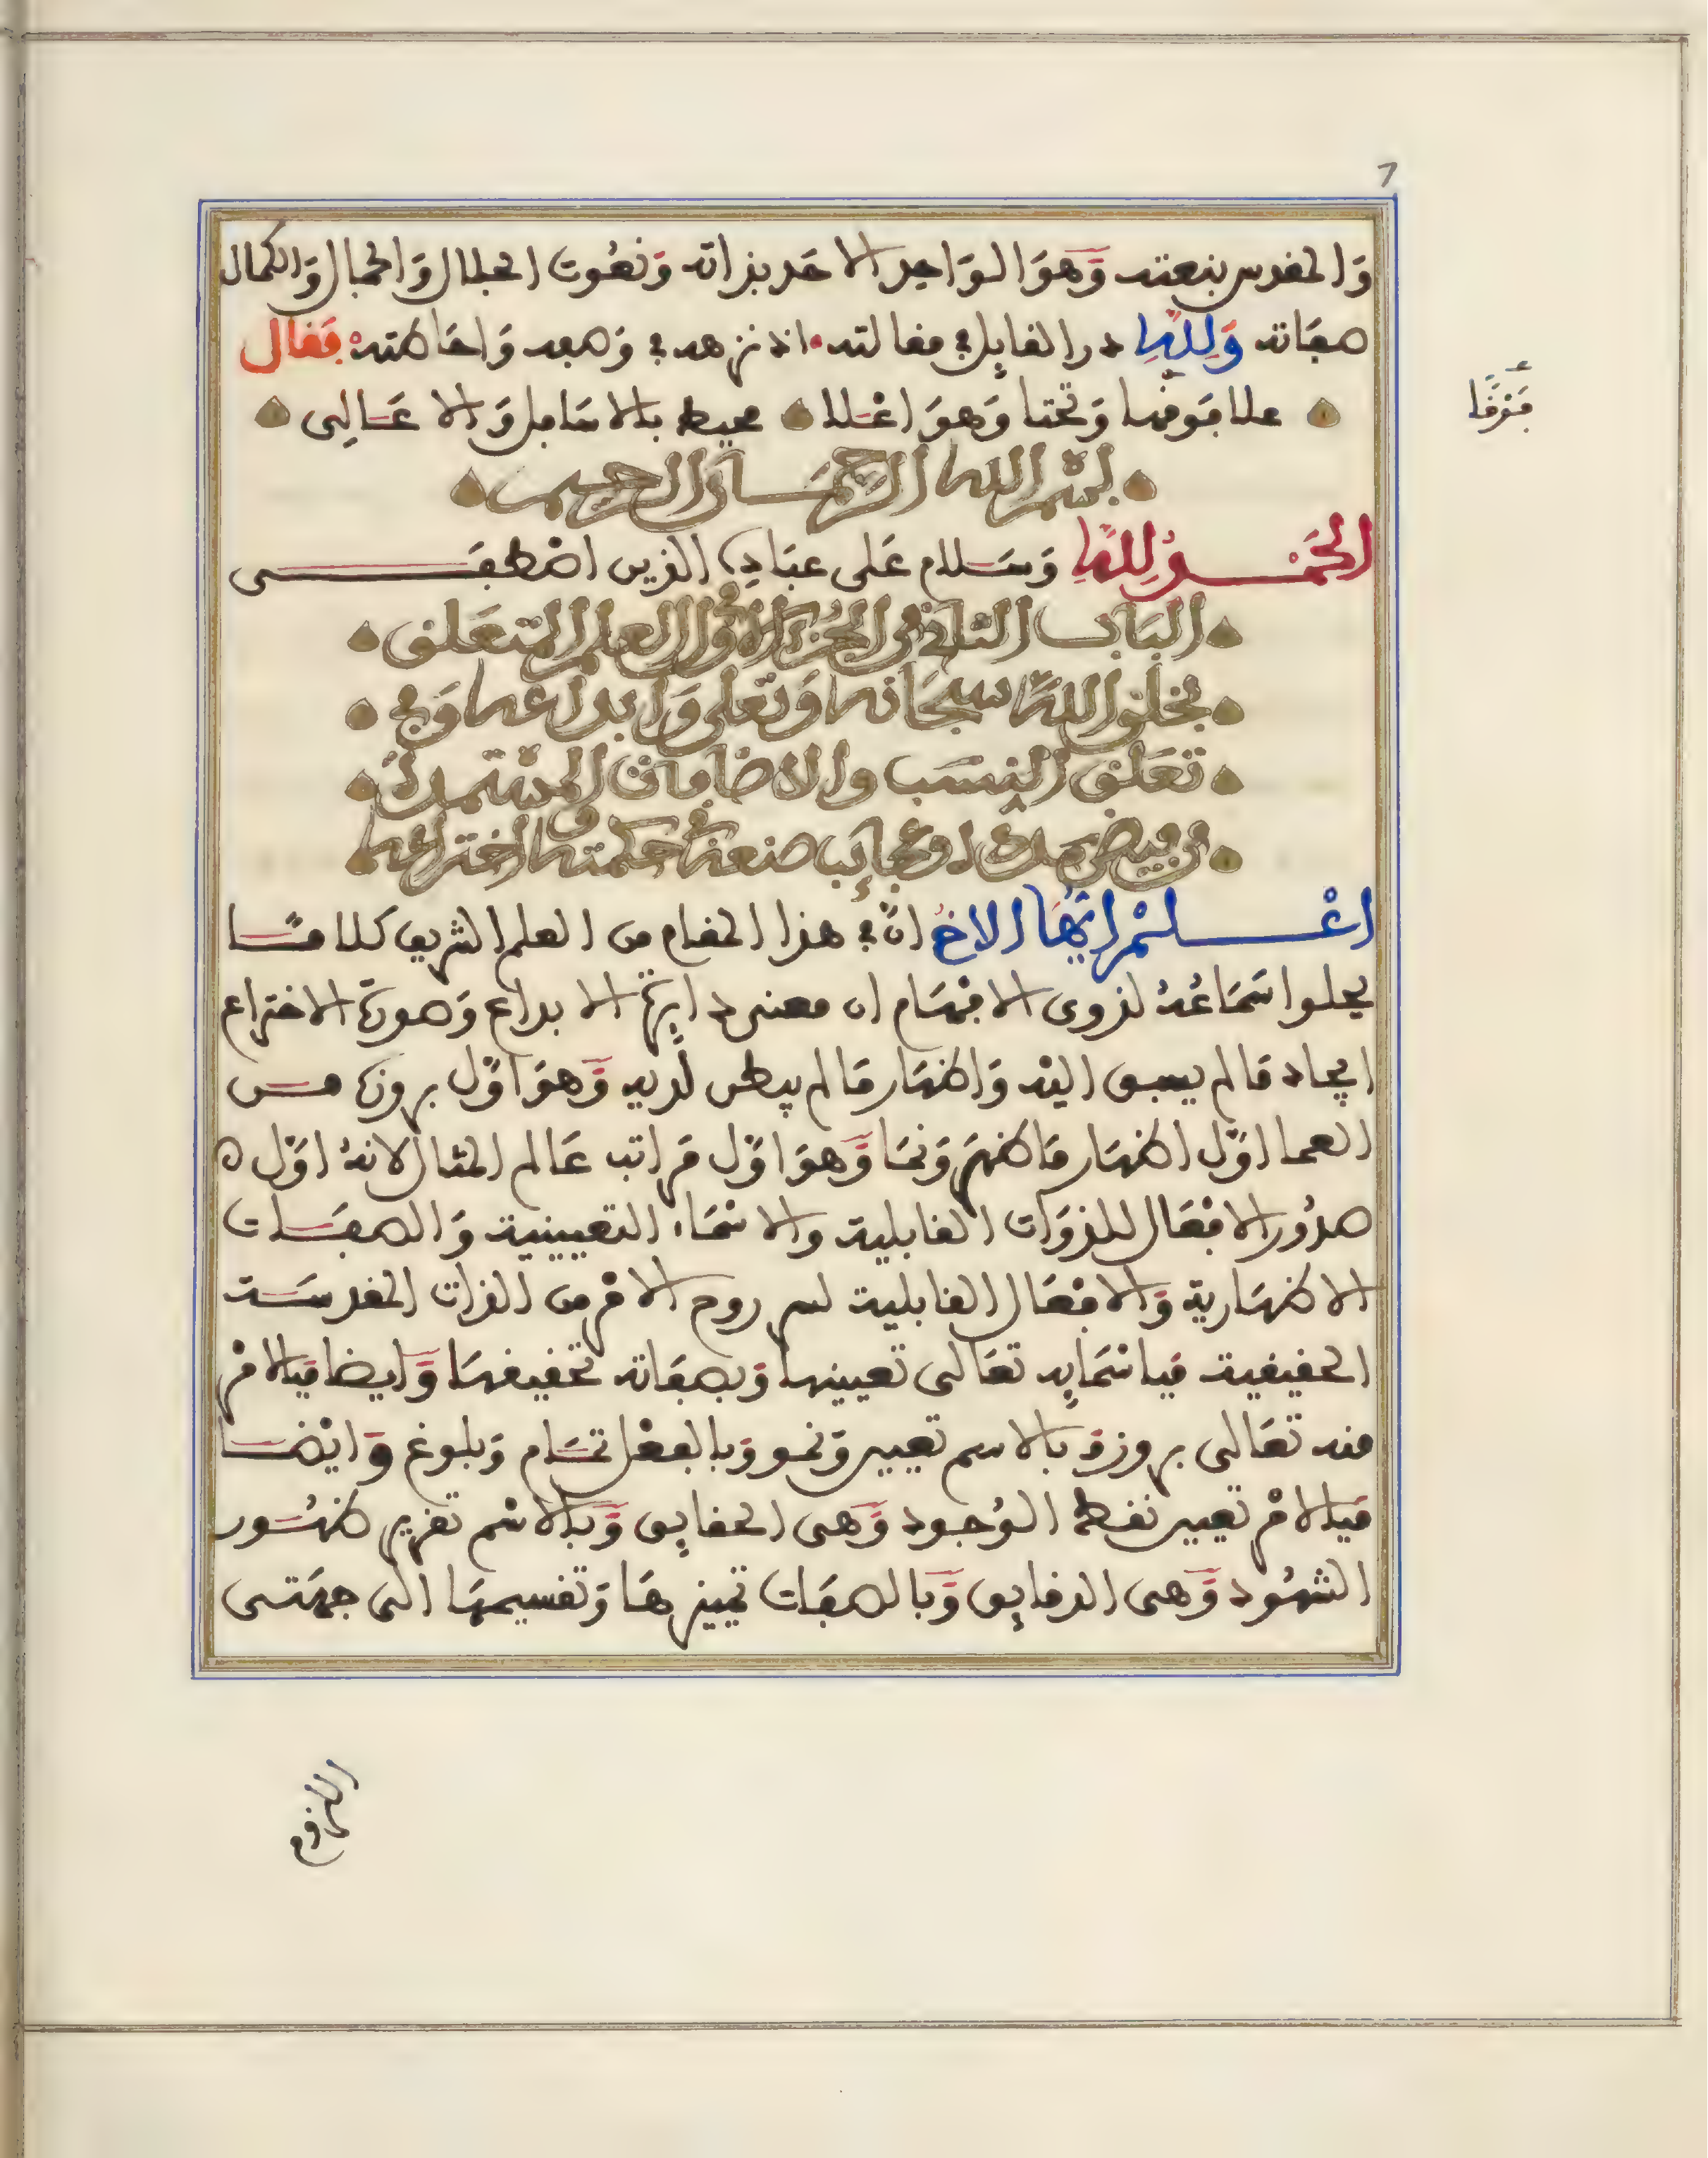 7
وَالمقدس بنعته وَهوَ الوَاحِد الاحَد بذاته وَنعُوت الجلال وَالجمال وَالكمال
صفاته وَلِلَّهِ در القايِل في مقالته اذ نزهه في وَصفه وَاحَاطته فَقال
علا فَوقها وَتحتا وَهوَ اعْلا محيط بالاسَافِل وَالاعَالِى
فَوْقًا
بسْم الله الرحمَان الرحيم
الحَمْدُ لِلَّهِ وَسَلام عَلى عبَادِه الذين اصْطفَى
البَاب الثاني في الجُزء الاوّل العلم المتعَلق
بخلق اللَّه سبحَانه وَتعَلى وَابداعه وَفي
تعَلق النِسَب والاضافات المسْتمدة
من فيض مدده وعجايب صنعة حكمته واختراعه
اعْلمْ ايُّهَا الاخ انّ في هذا المقام من العلم الشريف كلامًا
يحلوا سَمَاعُهُ لذوى الافْهَام ان معنى دايِرة الابداع وَصورَة الاختراع
ايجاد مَا لم يسبق اليْه وَاظهَار مَا لم يبطن لديه وَهوَ اوّل بروزه من
العما اوّل اظهَار مَا ظهَر وَنمَا وَهوَ اوّل مَراتب عَالم المثال لانهُ اوّل
صدُور الافْعَال للذوَات القابلية والاسْمَاء التعيينية وَالصفَات
الاظهَارية وَالافْعَال القابلية لسر روح الامْر من الذات المقدسَة
الحقيقية فباسْمَايِه تعَالى تعيينها وَبصفاته تحقيقهَا وَايضا فبالامْر
منه تعَالى بروزة بالاسم تعيين وَنمو وَبالفعْل تمَام وَبلوغ وَايْضا
فبالامْر تعيين نقطة الوُجود وَهى الحقايِق وَبالاسْم تقرير ظهُور
الشهُود وَهى الدقايِق وَبالصفات تمييزهَا وَتقسيمهَا الى جهَتى
اللزوم